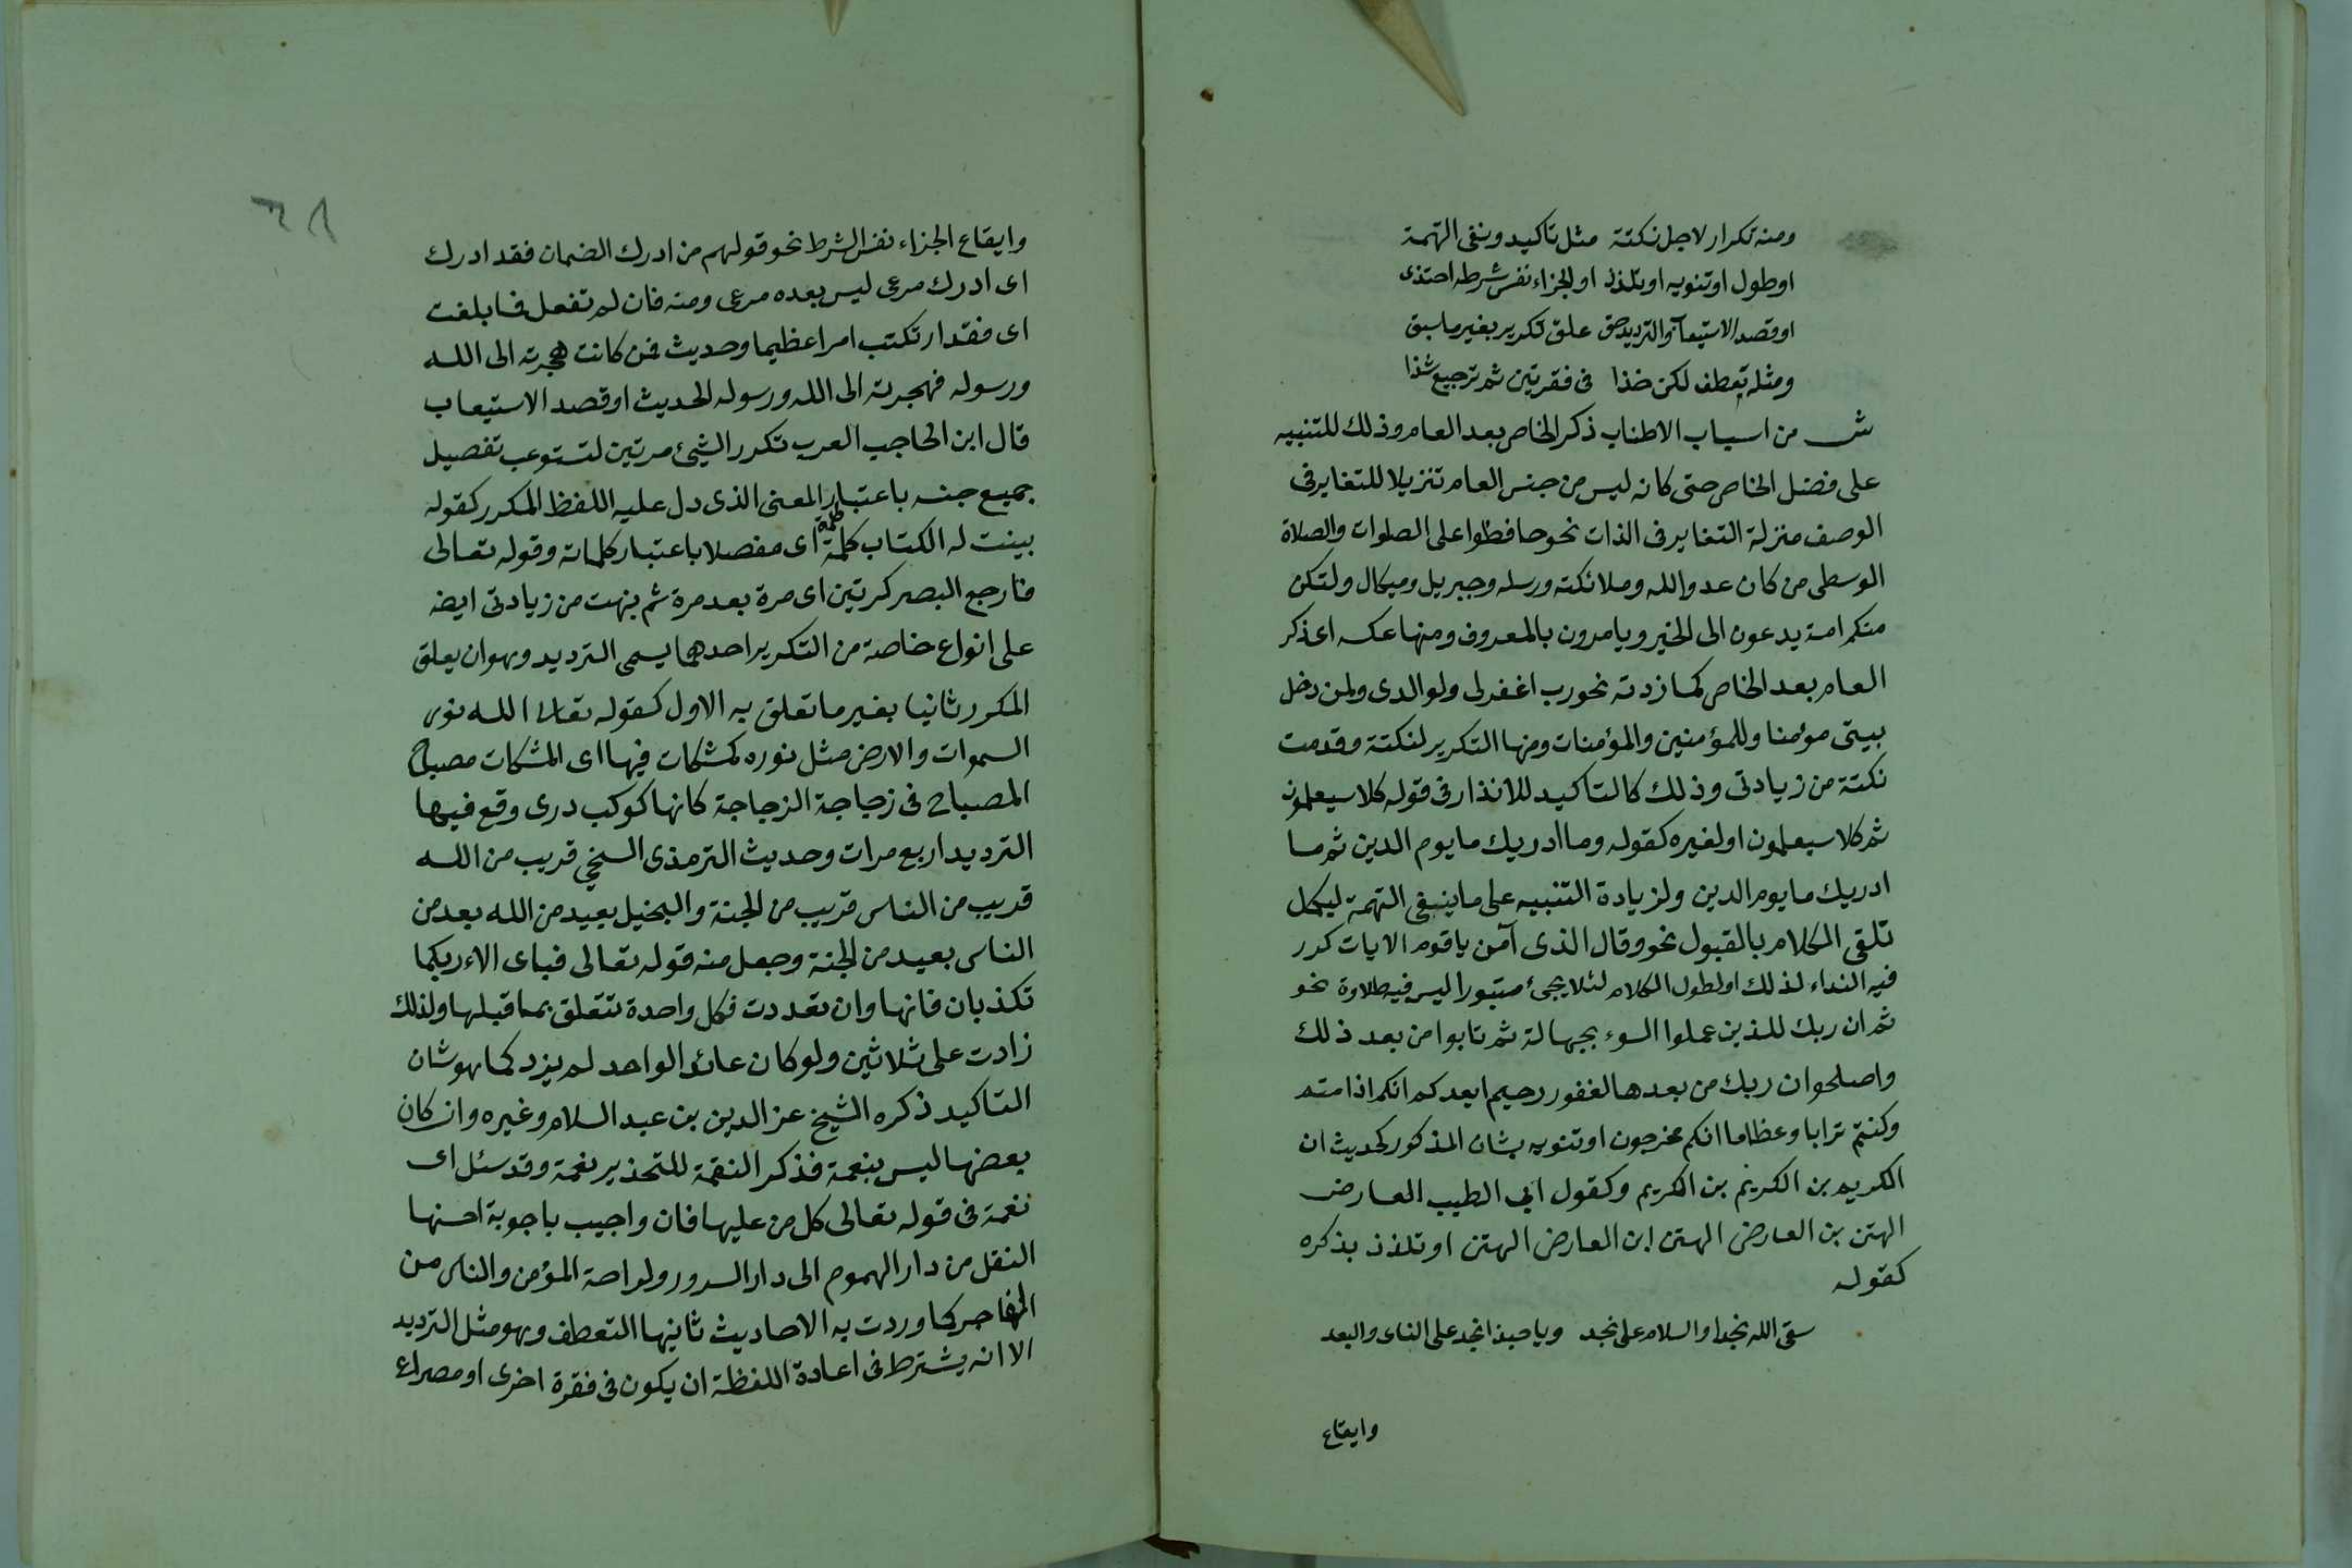 ومنه تكرار لاجل نكتة مثل تاكيد ونفى التهمة
او طول او تنويه او تلذذ او الجزاء نفس شرطه احتذى
او قصد الاستيعاب والترديد حق علق تكرير بغير ما سبق
ومثله تعطف لكن خذا فى فقرتين ثم ترجيع شذا
ش من اسباب الاطناب ذكر الخاص بعد العام وذلك للتنبيه
على فضل الخاص حتى كانه ليس من جنس العام تنزيلا للتغاير فى
الوصف منزلة التغاير فى الذات نحو حافظوا على الصلوات والصلاة
الوسطى من كان عدوا لله وملائكته ورسله وجبريل وميكال ولتكن
منكم امة يدعون الى الخير ويامرون بالمعروف ومنها عكسه اى ذكر
العام بعد الخاص كما زدته نحو رب اغفر لى ولوالدى ولمن دخل
بيتى مؤمنا وللمؤمنين والمؤمنات ومنها التكرير لنكتة وقدمت
نكتة من زيادتى وذلك كالتاكيد للانذار فى قوله كلا سيعلمون
ثم كلا سيعلمون او لغيره كقوله وما ادريك ما يوم الدين ثم ما
ادريك ما يوم الدين ولزيادة التنبيه على ما ينفى التهمة ليكمل
تلقى الكلام بالقبول نحو وقال الذى آمن يا قوم الايات كرر
فيه النداء لذلك او لطول الكلام لئلا يجئ مبتورا ليس فيه طلاوة نحو
ثم ان ربك للذين عملوا السوء بجهالة ثم تابوا من بعد ذلك
واصلحوا ان ربك من بعدها لغفور رحيم ايعدكم انكم اذا متم
وكنتم ترابا وعظاما انكم مخرجون او تنويه بشان المذكور كحديث ان
الكريم بن الكريم بن الكريم وكقول ابي الطيب العارض
الهتن بن العارض الهتن ابن العارض الهتن او تلذذ بذكره
كقوله
سقى الله نجدا والسلام على نجد ويا حبذا نجد على الناى والبعد
وايقاع
٦٨
وايقاع الجزاء نفس الشرط نحو قولهم من ادرك الضمان فقد ادرك
اى ادرك مرعى ليس بعده مرعى ومنه فان لم تفعل فما بلغت
اى فقد ارتكبت امرا عظيما وحديث فمن كانت هجرته الى الله
ورسوله فهجرته الى الله ورسوله الحديث او قصد الاستيعاب
قال ابن الحاجب العرب تكرر الشيئ مرتين لتستوعب تفصيل
جميع جنسه باعتبار المعنى الذى دل عليه اللفظ المكرر كقوله
بينت له الكتاب كلمة كلمة اى مفصلا باعتبار كلماته وقوله تعالى
فارجع البصر كرتين اى مرة بعد مرة ثم نبهت من زيادتى ايضه
على انواع خاصة من التكرير احدهما يسمى الترديد وهو ان يعلق
المكرر ثانيا بغير ما تعلق به الاول كقوله تعالى الله نور
السموات والارض مثل نوره كمشكات فيها اى المشكات مصباح
المصباح فى زجاجة الزجاجة كانها كوكب درى وقع فيها
الترديد اربع مرات وحديث الترمذى السخي قريب من الله
قريب من الناس قريب من الجنة والبخيل بعيد من الله بعد من
الناس بعيد من الجنة وجعل منه قوله تعالى فباى الاء ربكما
تكذبان فانها وان تعددت فكل واحدة تتعلق بما قبلها ولذلك
زادت على ثلاثين ولو كان عائد الواحد لم يزد كما هو شان
التاكيد ذكره الشيخ عز الدين بن عبد السلام وغيره وان كان
بعضها ليس بنعمة فذكر النقمة للتحذير نعمة وقد سئل اى
نعمة فى قوله تعالى كل من عليها فان واجيب باجوبة احسنها
النقل من دار الهموم الى دار السرور ولراحة المؤمن والناس من
الفاجر كما وردت به الاحاديث ثانيها التعطف وهو مثل الترديد
الا انه يشترط فى اعادة اللفظة ان يكون فى فقرة اخرى او مصراع